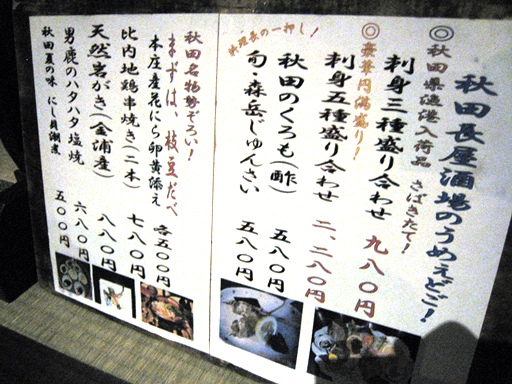 秋田長屋酒場のうめぇどご!
◎秋田県漁港入荷品 さばきたて!
刺身三種盛り合わせ 九八〇円
◎豪華円満盛り!
刺身五種盛り合わせ 二、二八〇円
料理長の一押し!
秋田のくろも(酢) 五八〇円
旬・森岳じゅんさい 五八〇円
秋田名物勢ぞろい!
まずは、枝豆だべ 各五〇〇円
本庄産花にら卵黄添え
比内地鶏串焼き(二本) 七八〇円
天然岩がき(金浦産) 八八〇円
男鹿のハタハタ塩焼 六八〇円
秋田夏の味 にし貝潮煮 五〇〇円